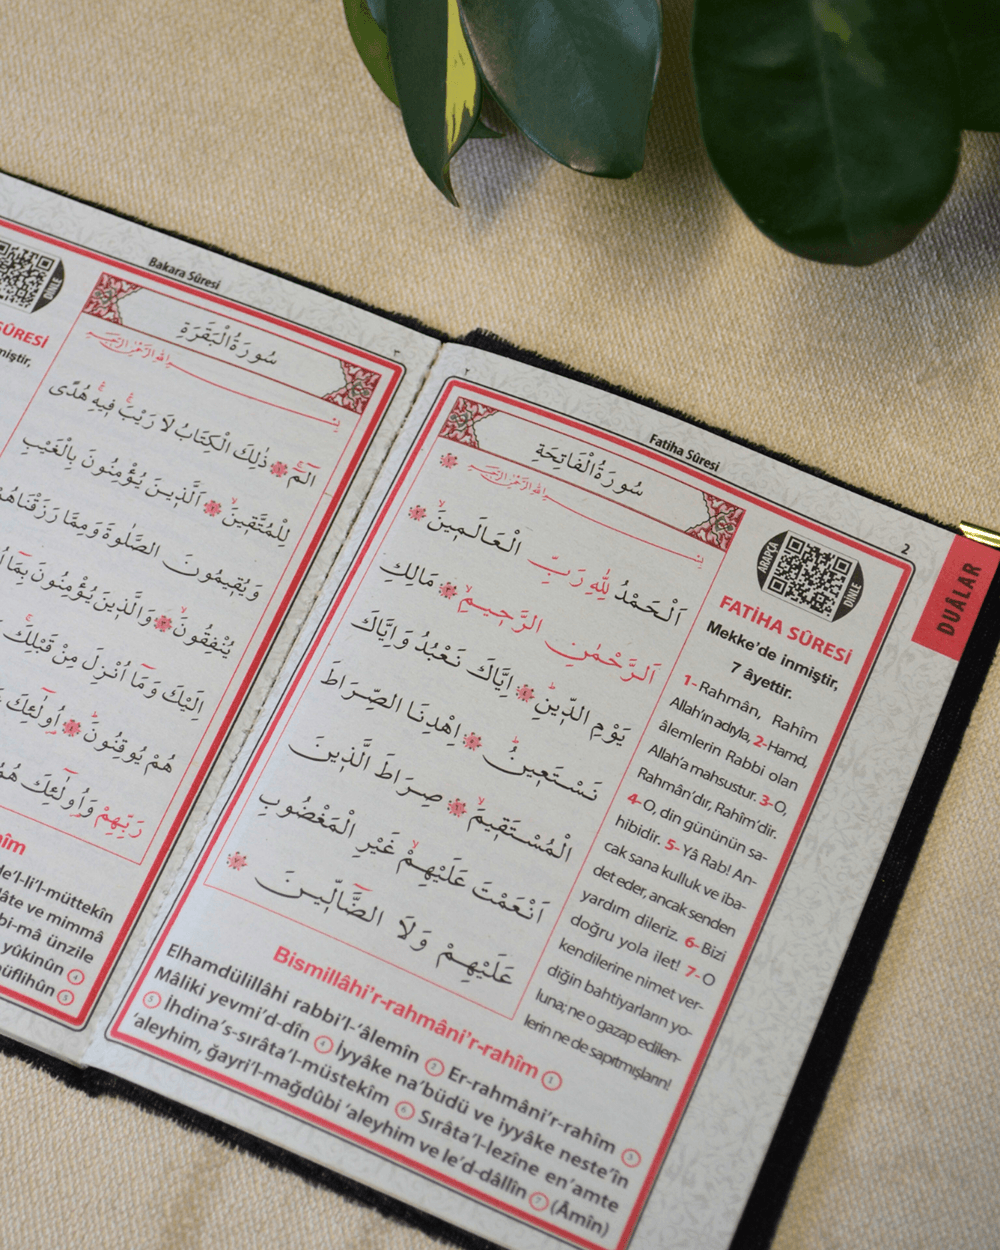 Fatiha Sûresi
٢
2
DUÂLAR
سُورَةُ الْفَاتِحَةِ
بِسْمِ اللهِ الرَّحْمٰنِ الرَّحِيمِ
اَلْحَمْدُ لِلّٰهِ رَبِّ الْعَالَمِينَۙ
اَلرَّحْمٰنِ الرَّحِيمِۙ مَالِكِ
يَوْمِ الدِّينِۜ اِيَّاكَ نَعْبُدُ وَاِيَّاكَ
نَسْتَعِينُۜ اِهْدِنَا الصِّرَاطَ
الْمُسْتَقِيمَۙ صِرَاطَ الَّذِينَ
اَنْعَمْتَ عَلَيْهِمْۙ غَيْرِ الْمَغْضُوبِ
عَلَيْهِمْ وَلَا الضَّٓالِّينَ
ARAPÇA
DİNLE
FATİHA SÛRESİ
Mekke'de inmiştir,
7 âyettir.
1- Rahmân, Rahîm
Allah'ın adıyla, 2- Hamd,
âlemlerin Rabbi olan
Allah'a mahsustur. 3- O,
Rahmân'dır, Rahîm'dir.
4- O, din gününün sa-
hibidir. 5- Yâ Rab! An-
cak sana kulluk ve iba-
det eder, ancak senden
yardım dileriz. 6- Bizi
doğru yola ilet! 7- O
kendilerine nimet ver-
diğin bahtiyarların yo-
luna; ne o gazap edilen-
lerin ne de sapıtmışların!
Bismillâhi'r-rahmâni'r-rahîm 1
Elhamdülillâhi rabbi'l-'âlemîn 2 Er-rahmâni'r-rahîm 3
Mâliki yevmi'd-dîn 4 İyyâke na'büdü ve iyyâke neste'în
5 İhdina's-sırâta'l-müstekîm 6 Sırâta'l-lezîne en'amte
'aleyhim, ğayri'l-mağdûbi 'aleyhim ve le'd-dâllîn 7 (Âmîn)
Bakara Sûresi
٣
سُورَةُ الْبَقَرَةِ
بِسْمِ اللهِ الرَّحْمٰنِ الرَّحِيمِ
الٓمٓۚ ذٰلِكَ الْكِتَابُ لَا رَيْبَۚ فِيهِۚ هُدًى
لِلْمُتَّقِينَۙ اَلَّذِينَ يُؤْمِنُونَ بِالْغَيْبِ
وَيُقِيمُونَ الصَّلٰوةَ وَمِمَّا رَزَقْنَاهُمْ
يُنْفِقُونَۙ وَالَّذِينَ يُؤْمِنُونَ بِمَٓا
اِلَيْكَ وَمَٓا اُنْزِلَ مِنْ قَبْلِكَۚ
هُمْ يُوقِنُونَۜ اُو۬لٰٓئِكَ
رَبِّهِمْ وَاُو۬لٰٓئِكَ هُمُ
DİNLE
SÛRESİ
miştir,
hîm
de'l-li'l-müttekîn
lâte ve mimmâ
bi-mâ ünzile
yûkinûn 4
müflihûn 5